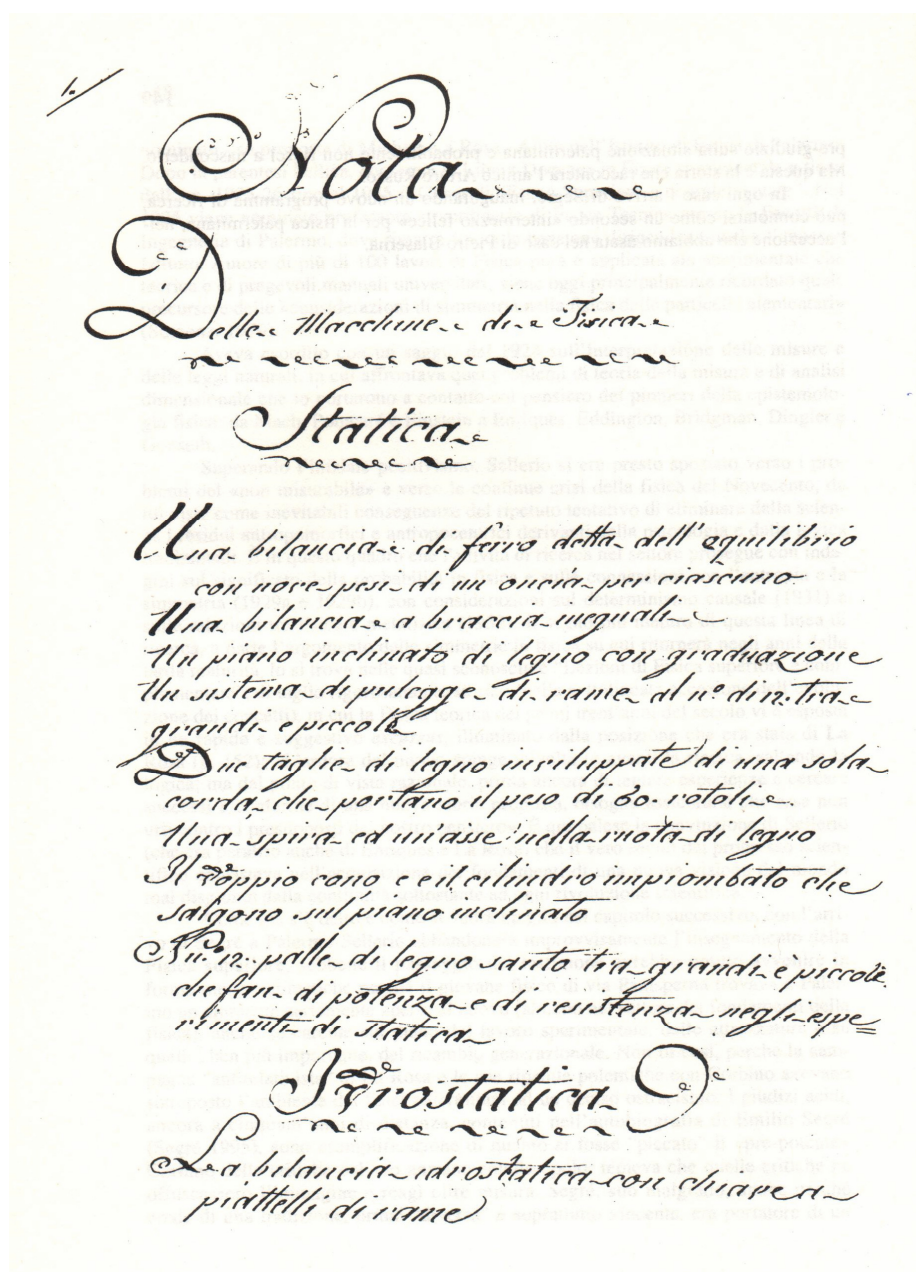 1.
Nota
Delle Macchine di Fisica
Statica
Una bilancia di ferro detta dell'equilibrio
con nove pesi di mezz'oncia per ciascuno
Una bilancia a braccia ineguali
Un piano inclinato di legno con graduazione
Un sistema di pulegge di rame al n.º di 12. tra
grandi e piccole
Due taglie di legno insiluppate di una sola
corda, che portano il peso di 60. rotoli
Una spina ed un'asse nella ruota di legno
Il doppio cono, e il cilindro impiombato che
salgono sul piano inclinato
Nu.º 12. palle di legno santo tra grandi e piccole
che fan di potenza e di resistenza negli espe=
rimenti di statica
Idrostatica
La bilancia idrostatica con chiave a
piattelli di rame